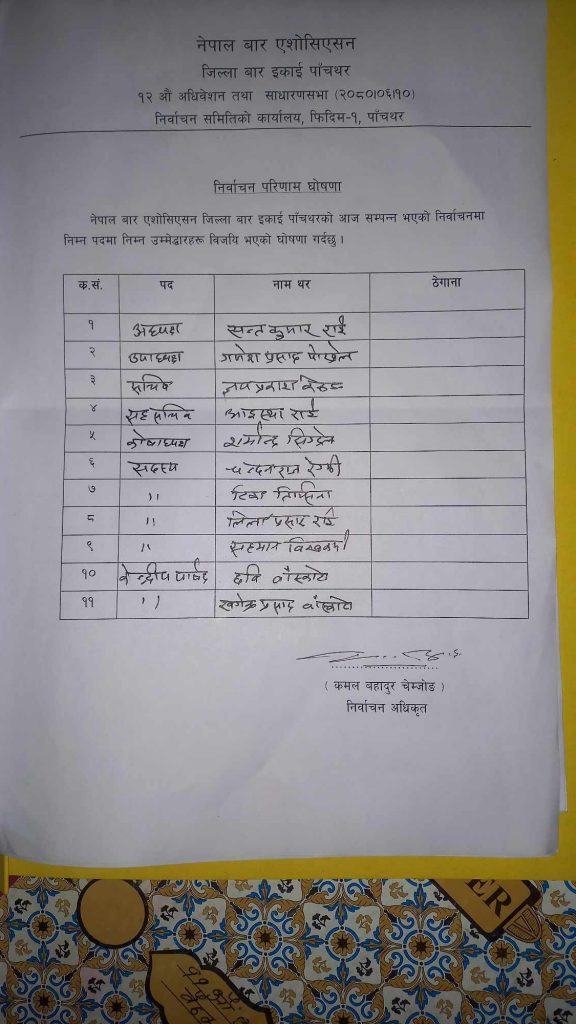 नेपाल बार एशोसिएसन
जिल्ला बार इकाई पाँचथर
१२ औ अधिवेशन तथा साधारणसभा (२०८०।०६।१०)
निर्वाचन समितिको कार्यालय, फिदिम-१, पाँचथर
निर्वाचन परिणाम घोषणा
नेपाल बार एशोसिएसन जिल्ला बार इकाई पाँचथरको आज सम्पन्न भएको निर्वाचनमा
निम्न पदमा निम्न उम्मेद्धारहरू विजयि भएको घोषणा गर्दछु ।
क.सं. पद नाम थर ठेगाना
१ अध्यक्ष सन्त कुमार राई
२ उपाध्यक्ष गणेश प्रसाद पोखेल
३ सचिव जय प्रकाश
४ सह सचिव आइस्था राई
५ कोषाध्यक्ष शर्मानन्द सिग्देल
६ सदस्य चन्दनराज रेग्मी
७ ,, टिका
८ ,, लिला प्रसाद राई
९ ,, सहमान विश्वकर्मा
१० केन्द्रीय पार्षद छवि बाँस्कोटा
११ ,, खगेन्द्र प्रसाद बाँस्कोटा
( कमल बहादुर चेम्जोङ )
निर्वाचन अधिकृत
ER